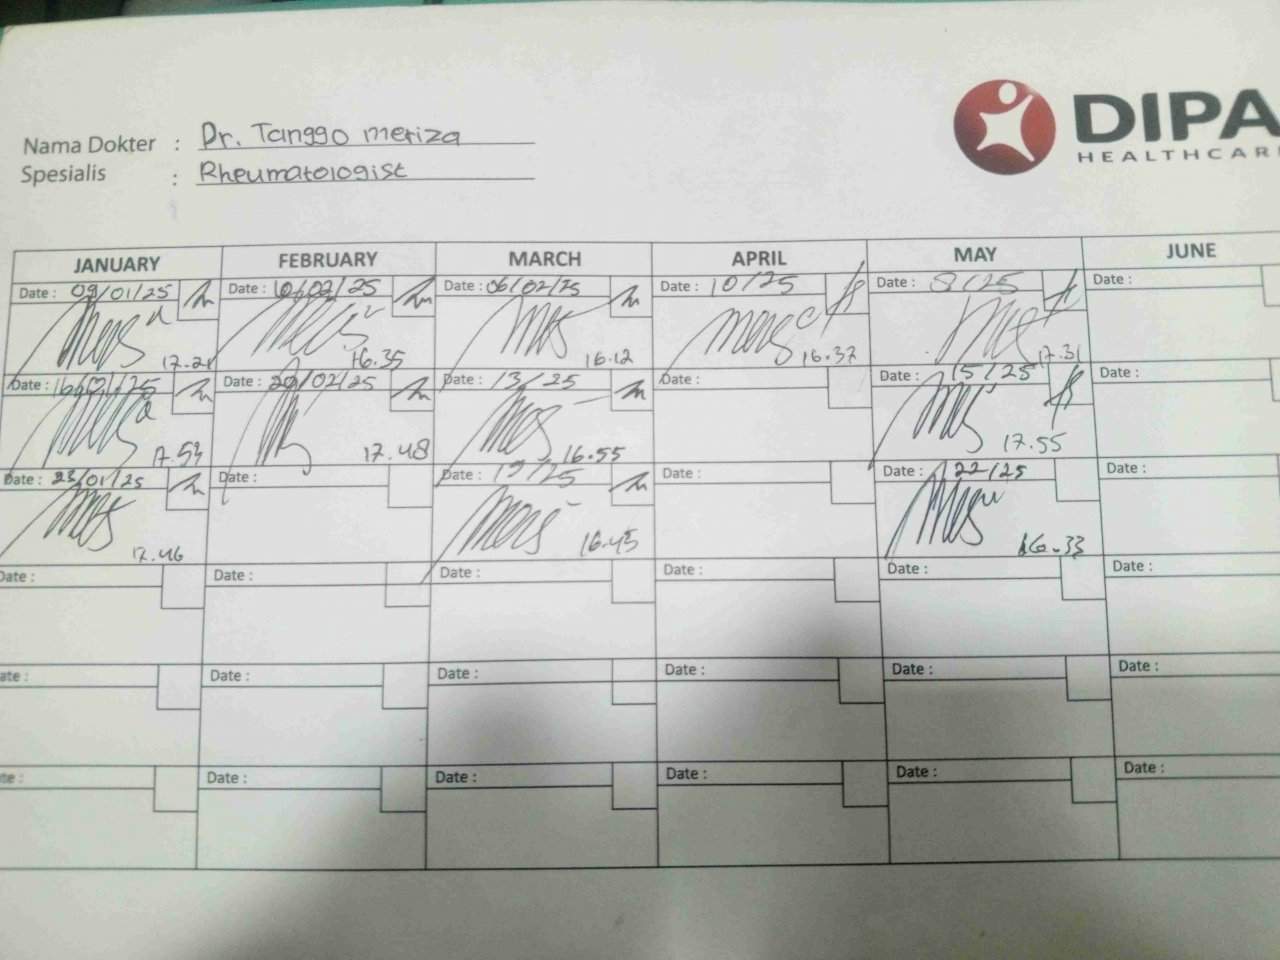 DIPA
HEALTHCAR
Nama Dokter : Dr. Tanggo meriza
Spesialis : Rheumatologist
JANUARY FEBRUARY MARCH APRIL MAY JUNE
Date : 09/01/25 Date : 10/02/25 Date : 06/02/25 Date : 10/25 Date : 8/25 Date :
17.21 16.35 16.12 16.37 17.31
Date : 16/01/25 Date : 20/02/25 Date : 13/25 Date : Date : 15/25 Date :
17.53 17.48 16.55 17.55
Date : 23/01/25 Date : Date : 19/25 Date : Date : 22/25 Date :
17.46 16.45 16.33
Date : Date : Date : Date : Date : Date :
ate : Date : Date : Date : Date : Date :
te : Date : Date : Date : Date : Date :